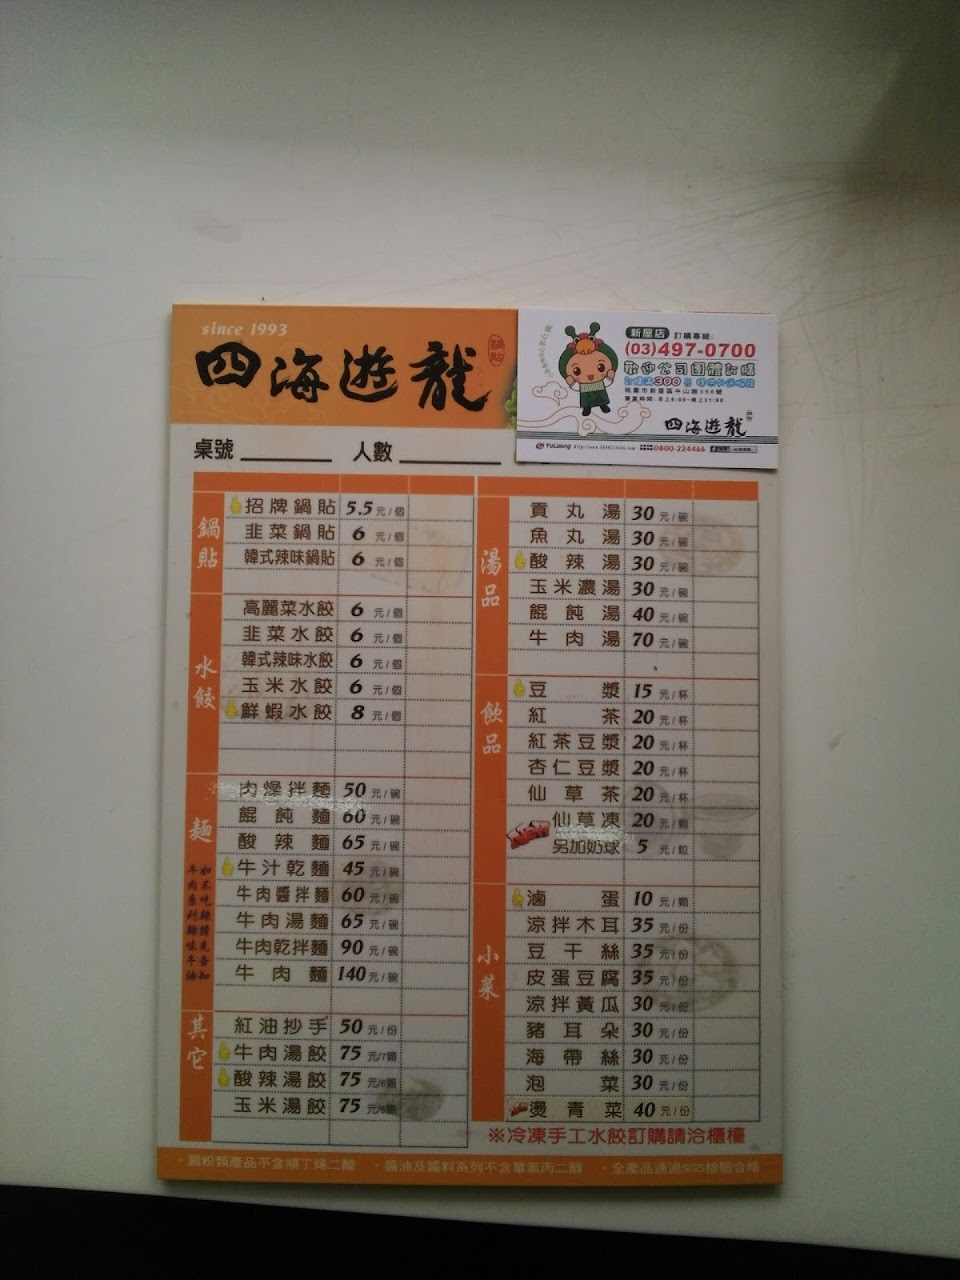 since 1993
四海遊龍
鍋貼
桌號
人數
新屋店 訂購專線:
(03)497-0700
歡迎公司團體訂購
桃園市新屋區中山路
四海遊龍
YuLoong
0800-224466
鍋貼
招牌鍋貼 5.5 元/個
韭菜鍋貼 6 元/個
韓式辣味鍋貼 6 元/個
水餃
高麗菜水餃 6 元/個
韭菜水餃 6 元/個
韓式辣味水餃 6 元/個
玉米水餃 6 元/個
鮮蝦水餃 8 元/個
麵
如不吃辣請先告知
肉燥拌麵 50 元/碗
餛飩麵 60 元/碗
酸辣麵 65 元/碗
牛汁乾麵 45 元/碗
牛肉醬拌麵 60 元/碗
牛肉湯麵 65 元/碗
牛肉乾拌麵 90 元/碗
牛肉麵 140 元/碗
其它
紅油抄手 50 元/份
牛肉湯餃 75 元/7顆
酸辣湯餃 75 元/8顆
玉米湯餃 75 元/8顆
湯品
貢丸湯 30 元/碗
魚丸湯 30 元/碗
酸辣湯 30 元/碗
玉米濃湯 30 元/碗
餛飩湯 40 元/碗
牛肉湯 70 元/碗
飲品
豆漿 15 元/杯
紅茶 20 元/杯
紅茶豆漿 20 元/杯
杏仁豆漿 20 元/杯
仙草茶 20 元/杯
New 仙草凍 20 元/顆
另加奶球 5 元/粒
小菜
滷蛋 10 元/顆
涼拌木耳 35 元/份
豆干絲 35 元/份
皮蛋豆腐 35 元/份
涼拌黃瓜 30 元/份
豬耳朵 30 元/份
海帶絲 30 元/份
泡菜 30 元/份
燙青菜 40 元/份
※冷凍手工水餃訂購請洽櫃檯
·澱粉類產品不含順丁烯二酸 ·醬油及醬料系列不含單氯丙二醇 ·全產品通過SGS檢驗合格